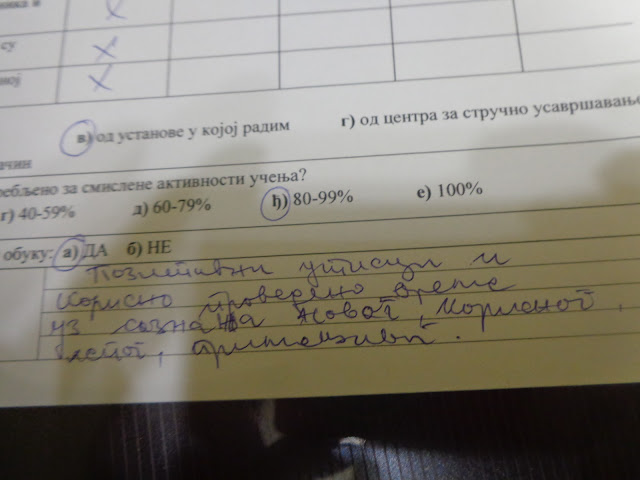 су
ној
в) од установе у којој радим г) од центра за стручно усавршавање
ачин
ребљено за смислене активности учења?
г) 40-59% д) 60-79% ђ) 80-99% е) 100%
обуку: а) ДА б) НЕ
Позитивни утисци и
корисно проведено време
уз сазнања новог, корисног,
лепог,